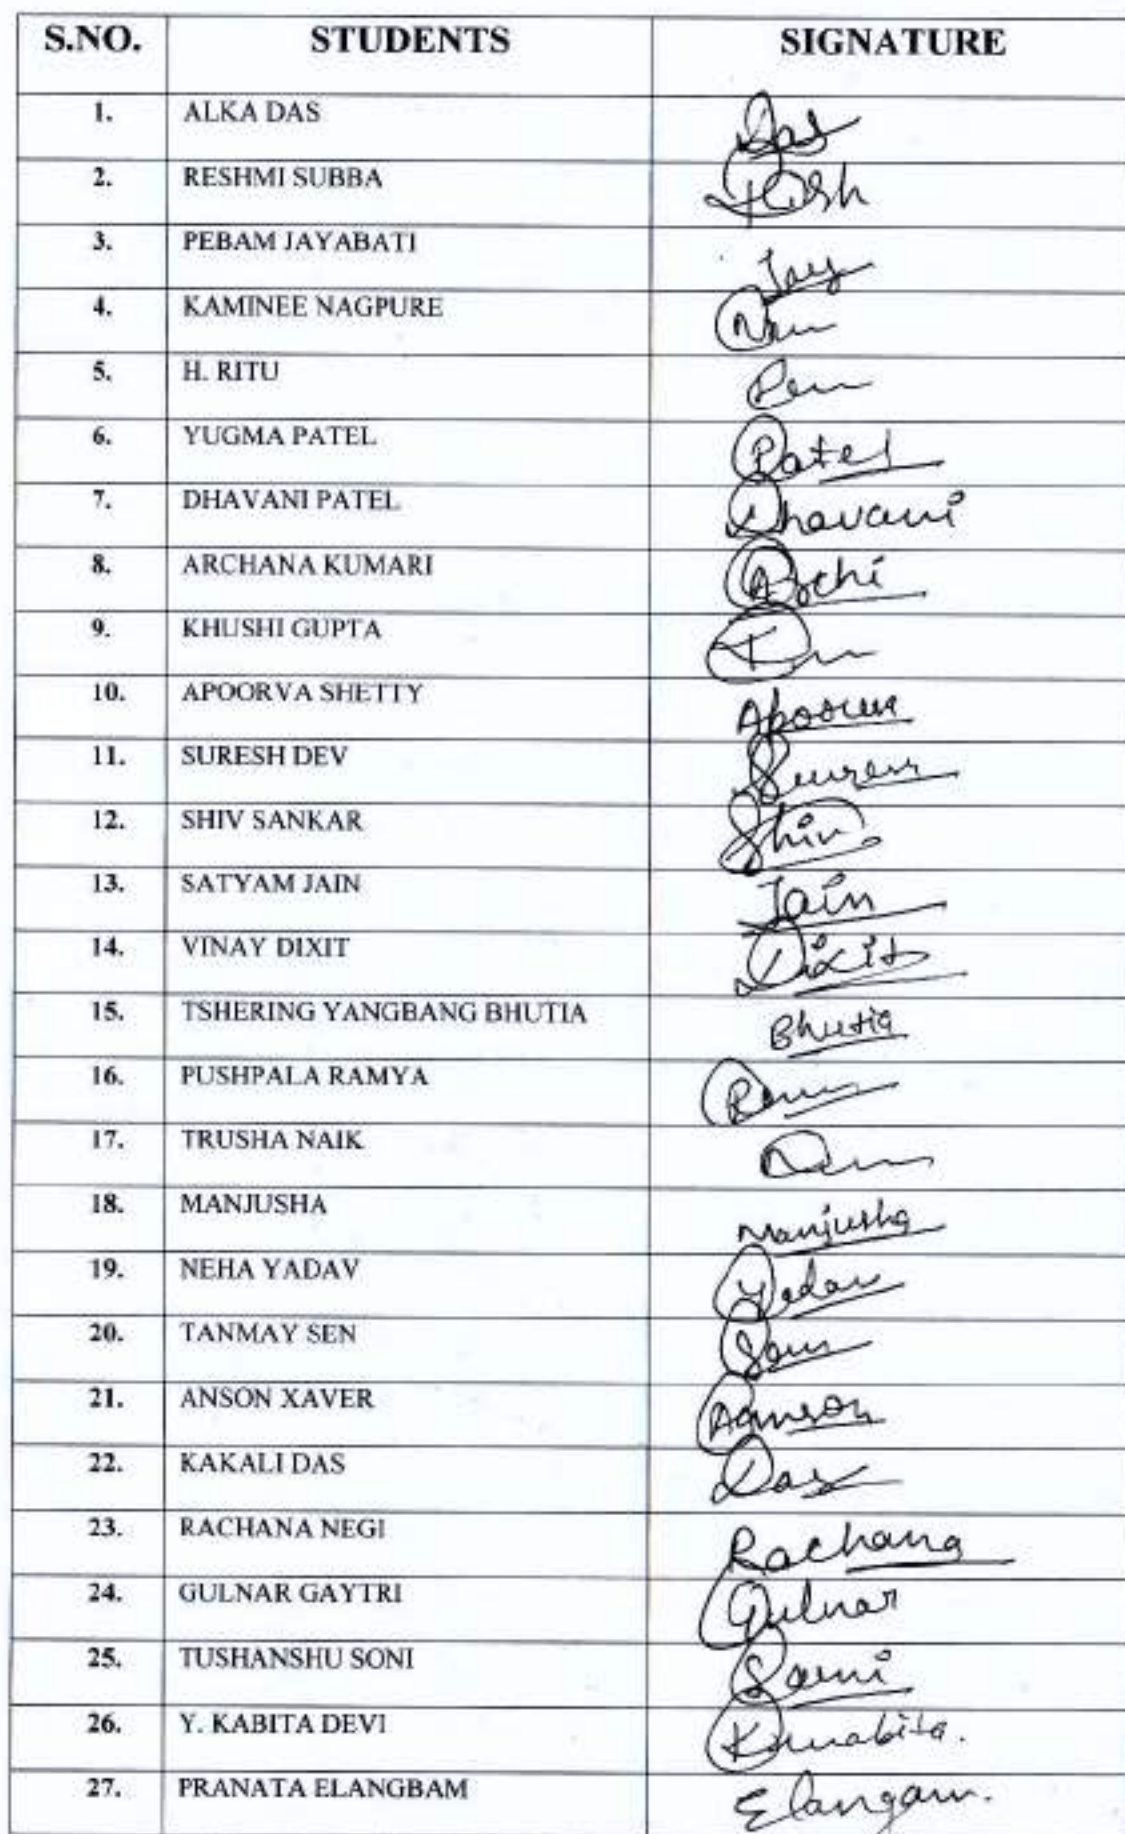 S.NO. STUDENTS SIGNATURE
1. ALKA DAS Das
2. RESHMI SUBBA
3. PEBAM JAYABATI Jay
4. KAMINEE NAGPURE
5. H. RITU
6. YUGMA PATEL Patel
7. DHAVANI PATEL Dhavani
8. ARCHANA KUMARI Archi
9. KHUSHI GUPTA
10. APOORVA SHETTY Apoorva
11. SURESH DEV
12. SHIV SANKAR Shiv
13. SATYAM JAIN Jain
14. VINAY DIXIT Dixit
15. TSHERING YANGBANG BHUTIA Bhutia
16. PUSHPALA RAMYA
17. TRUSHA NAIK
18. MANJUSHA Manjusha
19. NEHA YADAV Yadav
20. TANMAY SEN
21. ANSON XAVER
22. KAKALI DAS Das
23. RACHANA NEGI Rachana
24. GULNAR GAYTRI Gulnar
25. TUSHANSHU SONI Soni
26. Y. KABITA DEVI
27. PRANATA ELANGBAM Elangam.